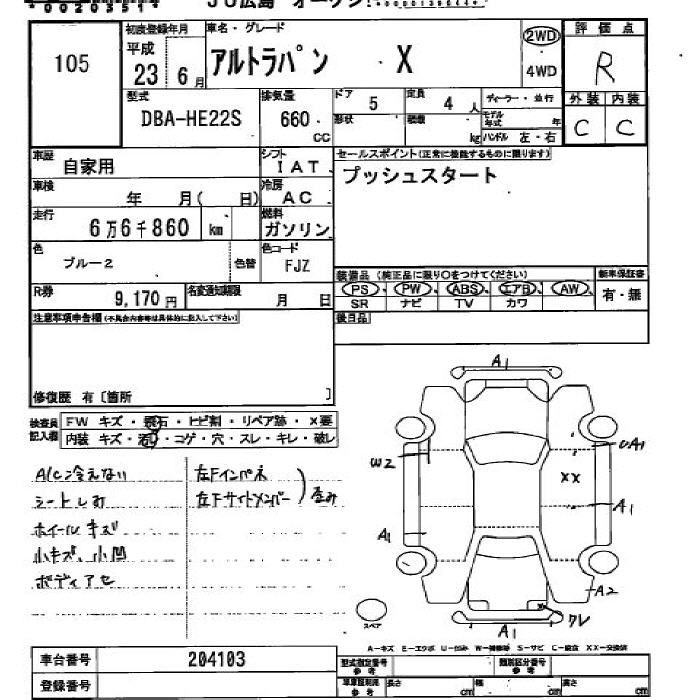 00205514 JU広島 オークション
105
初度登録年月 車名・グレード
平成 23 6月 アルトラパン X
2WD
4WD
評価点
R
型式 排気量 ドア 5 定員 4人 ディーラー・並行
DBA-HE22S 660 CC 形状 積載 kg モデル年式 年
ハンドル 左・右
外装 内装
C C
車歴 自家用 シフト IAT
セールスポイント(正常に機能するものに限ります)
プッシュスタート
車検 年 月( 日) 冷房 AC
走行 6万6千860 km 燃料 ガソリン
色 ブルー2 色替 色コード FJZ
装備品(純正品に限り○をつけてください) 新車保証書
PS、PW、ABS、エアB、AW、 有・無
SR ナビ TV カワ
R券 9,170円 名変通知期限 月 日
注意事項申告欄(不具合内容等は具体的に記入して下さい)
後日品
修復歴 有〔箇所 〕
検査員記入欄
FW キズ・飛石・ヒビ割・リペア跡・X要
内装 キズ・汚れ・コゲ・穴・スレ・キレ・破レ
A/C冷えない 左Fインパネ
シートしみ 左Fサイドメンバー 歪み
ホイールキズ
小キズ、小凹
ボディアセ
A1
W2
UA1
XX
A1
A1
A2
クレ
A1
スペア
A-キズ E-エクボ U-凹み W-補修跡 S-サビ C-腐食 XX-交換済
車台番号 204103
登録番号
型式指定番号 参考 類別区分番号 参考
車庫証明用 参考 長さ cm 幅 cm 高さ cm